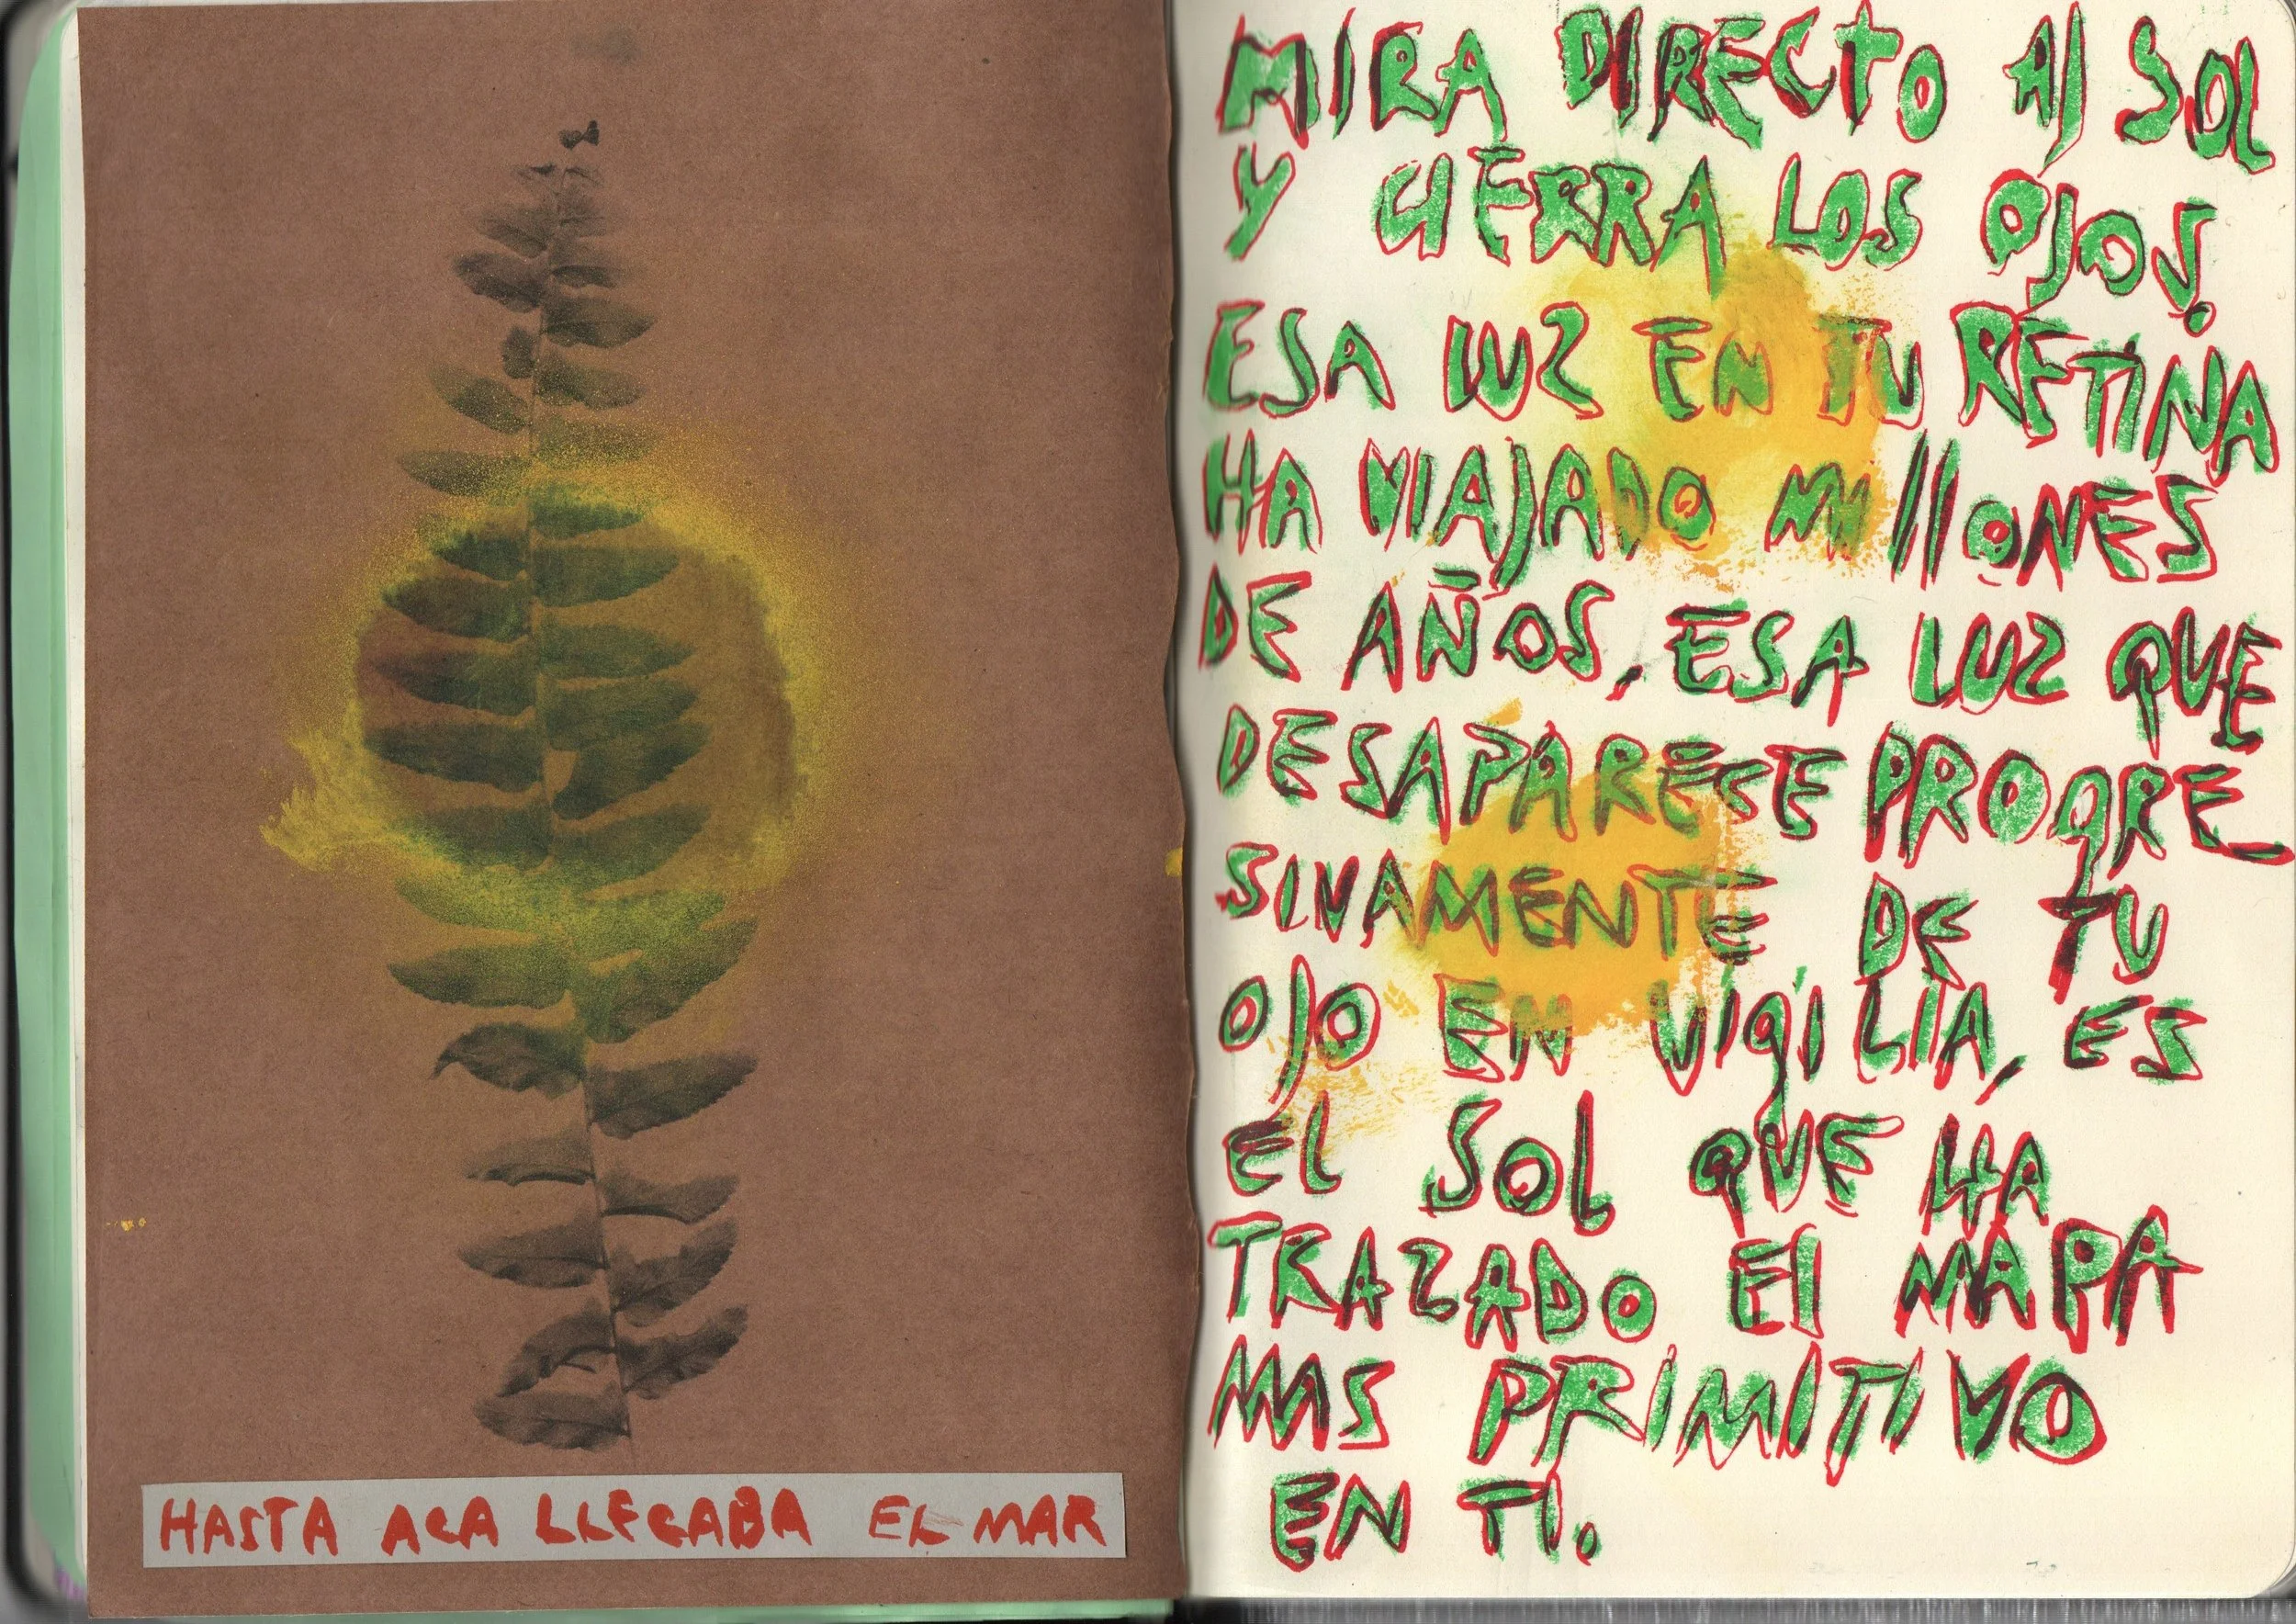 HASTA ACA LLEGABA EL MAR
MIRA DIRECTO Al SOL
Y CIERRA LOS OJOS.
ESA LUZ EN TU RETINA
HA VIAJADO MIllONES
DE AÑOS, ESA LUZ QUE
DESAPARECE PROGRE_
SIVAMENTE DE TU
OJO EN VIGILIA, ES
El SOl QUE HA
TRAZADO El MAPA
MAS PRIMITIVO
EN TI.